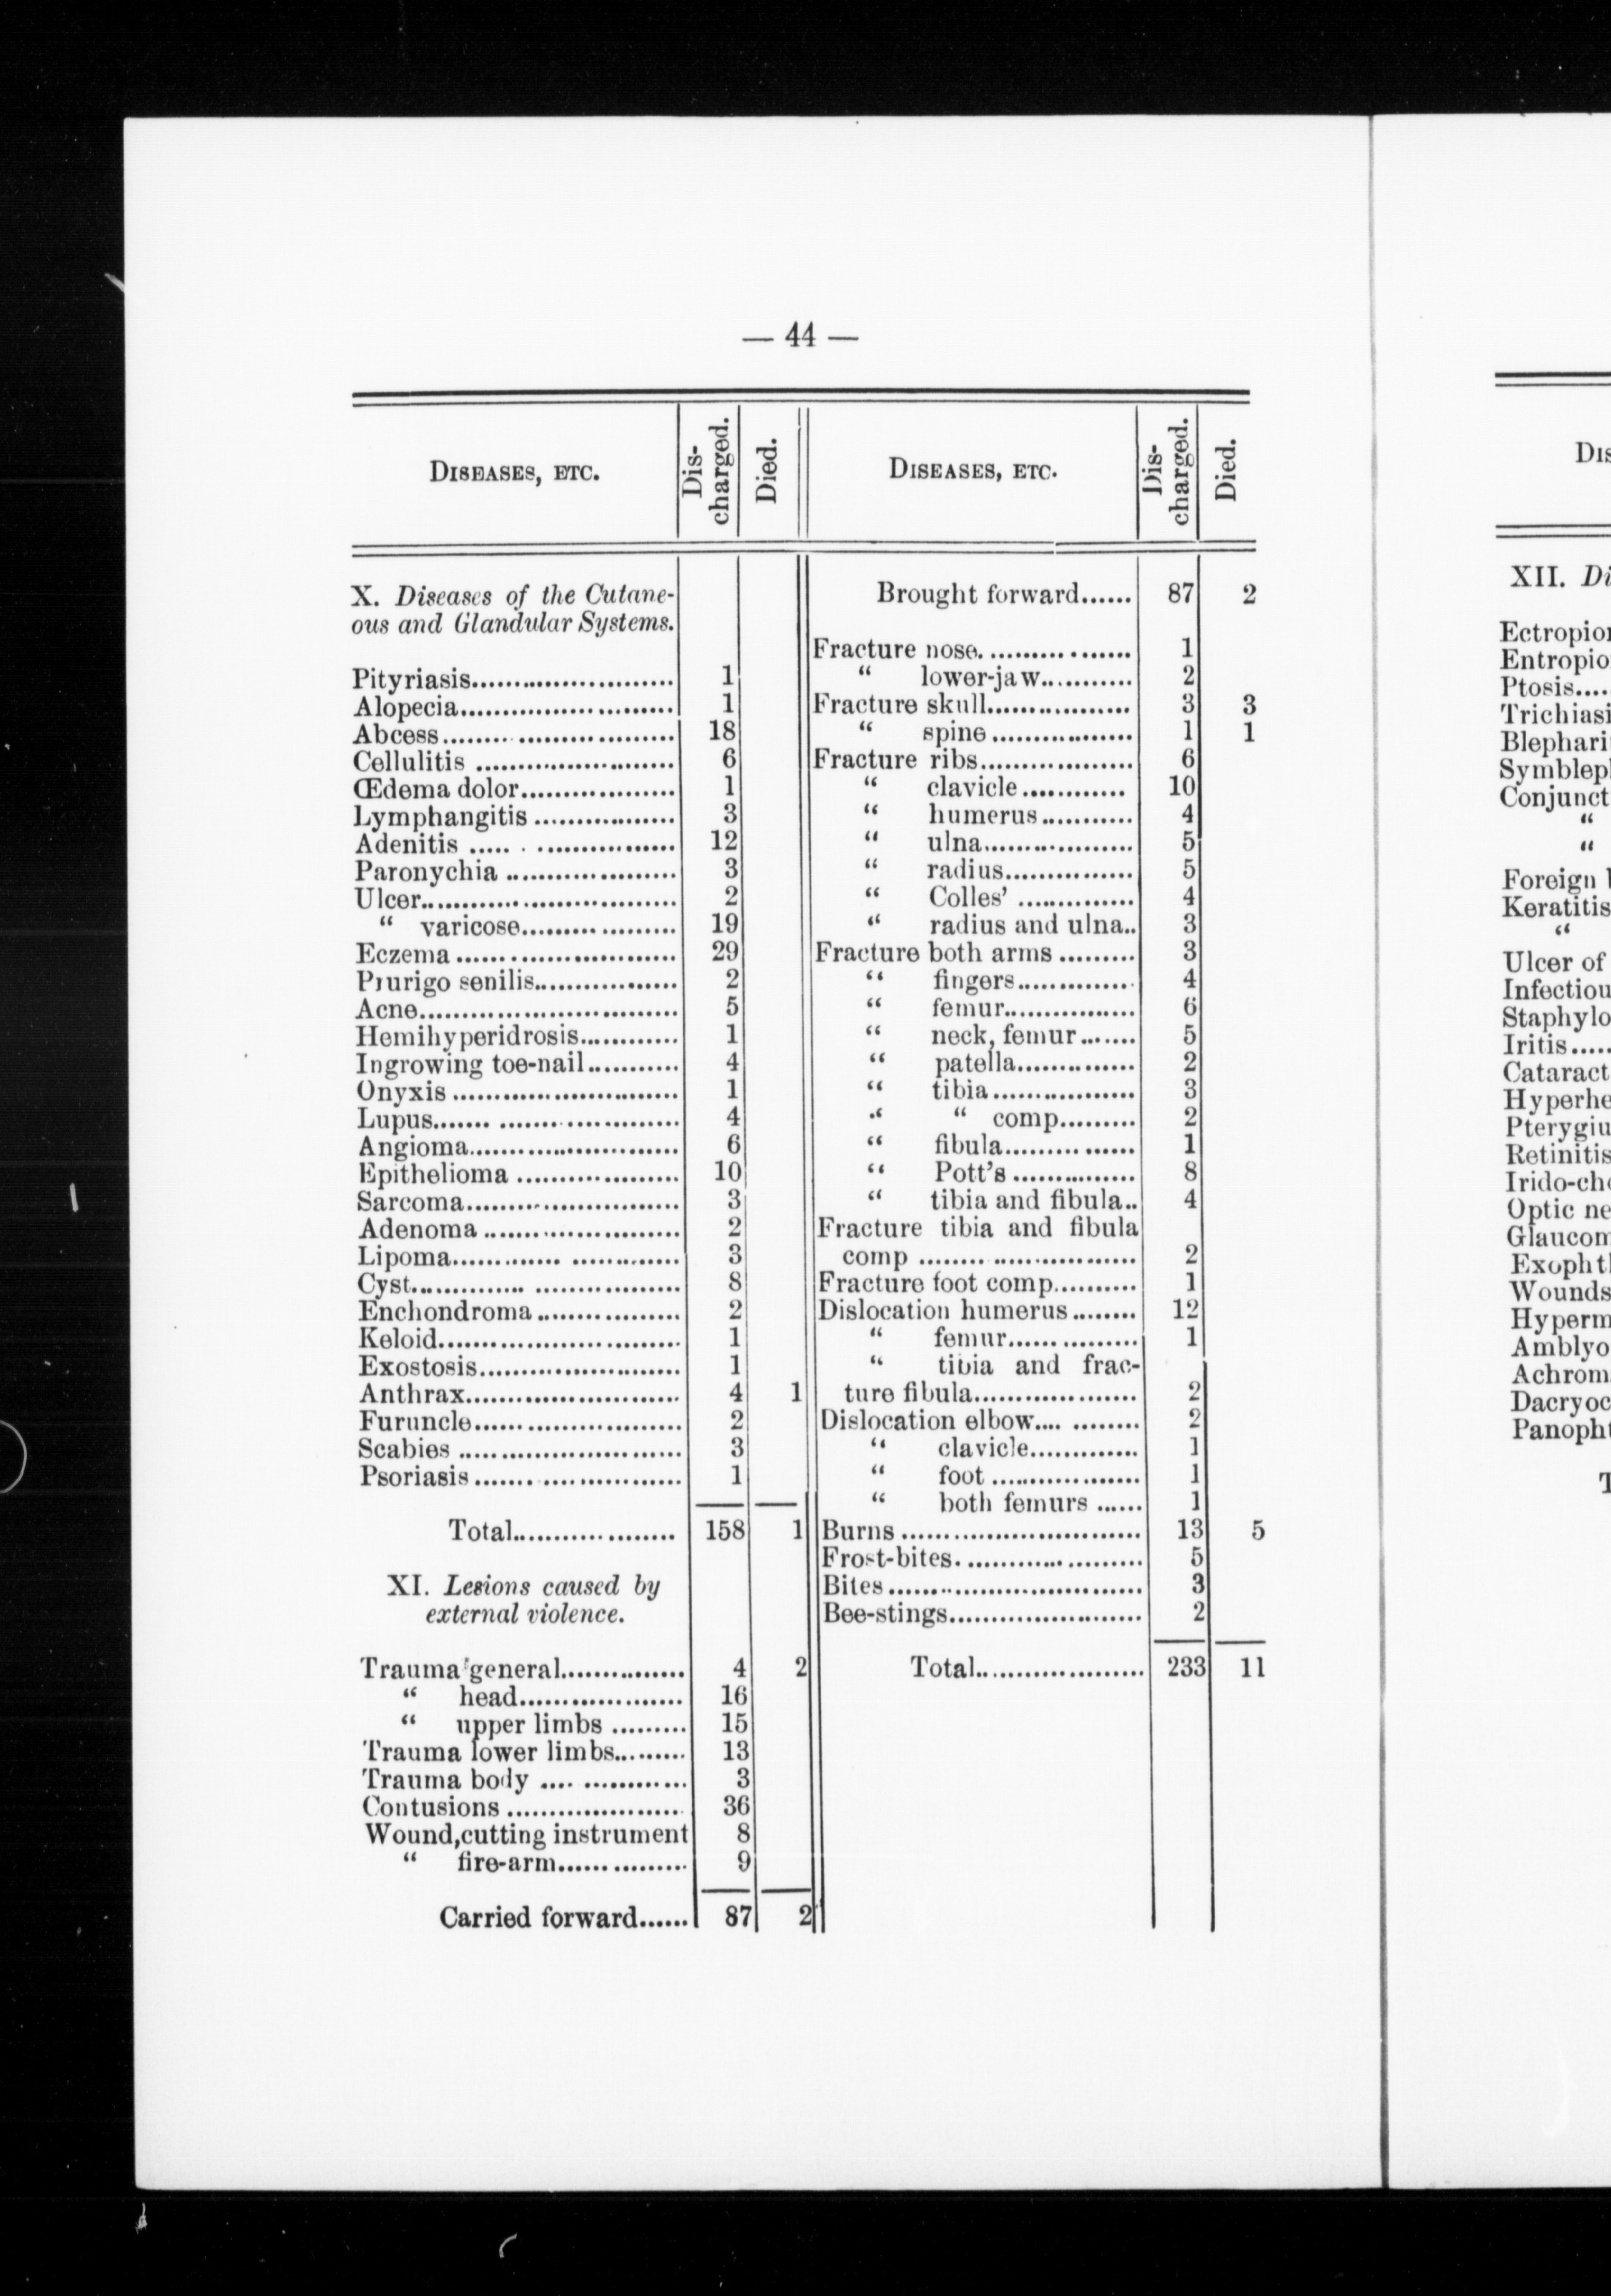 — 44 —
DISEASES, ETC.
Dis-
charged.
Died.
X. Diseases of the Cutane-
ous and Glandular Systems.
Pityriasis........................ 1
Alopecia......................... 1
Abcess............................ 18
Cellulitis ........................ 6
Œdema dolor.................. 1
Lymphangitis ................. 3
Adenitis ..... . ................. 12
Paronychia .................... 3
Ulcer.............................. 2
“ varicose................... 19
Eczema .......................... 29
Prurigo senilis................. 2
Acne............................... 5
Hemihyperidrosis............ 1
Ingrowing toe-nail........... 4
Onyxis ........................... 1
Lupus....... ..................... 4
Angioma......................... 6
Epithelioma ................... 10
Sarcoma......................... 3
Adenoma ....................... 2
Lipoma............. ............. 3
Cyst.............. .................. 8
Enchondroma ................. 2
Keloid............................ 1
Exostosis........................ 1
Anthrax......................... 4 1
Furuncle........................ 2
Scabies .......................... 3
Psoriasis........................ 1
Total................... 158 1
XI. Lesions caused by
external violence.
Trauma general............... 4 2
“ head.................... 16
“ upper limbs ......... 15
Trauma lower limbs......... 13
Trauma body .... ............. 3
Contusions ..................... 36
Wound,cutting instrument 8
“ fire-arm................ 9
Carried forward...... 87 2
DISEASES, ETC.
Dis-
charged.
Died.
Brought forward...... 87 2
Fracture nose. ................. 1
“ lower-jaw........... 2
Fracture skull................. 3 3
“ spine ................. 1 1
Fracture ribs.................. 6
“ clavicle............ 10
“ humerus........... 4
“ ulna.................. 5
“ radius............... 5
“ Colles’ .............. 4
“ radius and ulna.. 3
Fracture both arms ......... 3
“ fingers.............. 4
“ femur................ 6
“ neck, femur....... 5
“ patella.............. 2
“ tibia................. 3
“ “ comp......... 2
“ fibula................ 1
“ Pott’s ............... 8
“ tibia and fibula.. 4
Fracture tibia and fibula
comp .......................... 2
Fracture foot comp.......... 1
Dislocation humerus........ 12
“ femur................ 1
“ tibia and frac-
ture fibula................... 2
Dislocation elbow.... ........ 2
“ clavicle............. 1
“ foot .................. 1
“ both femurs ...... 1
Burns ............................ 13 5
Frost-bites. ..................... 5
Bites.............................. 3
Bee-stings....................... 2
Total.................... 233 11
XII.
Ptosis....
Foreign
Keratitis
“
“
“
Ulcer of
Iritis.....
Cataract
Retinitis
Optic
Wounds